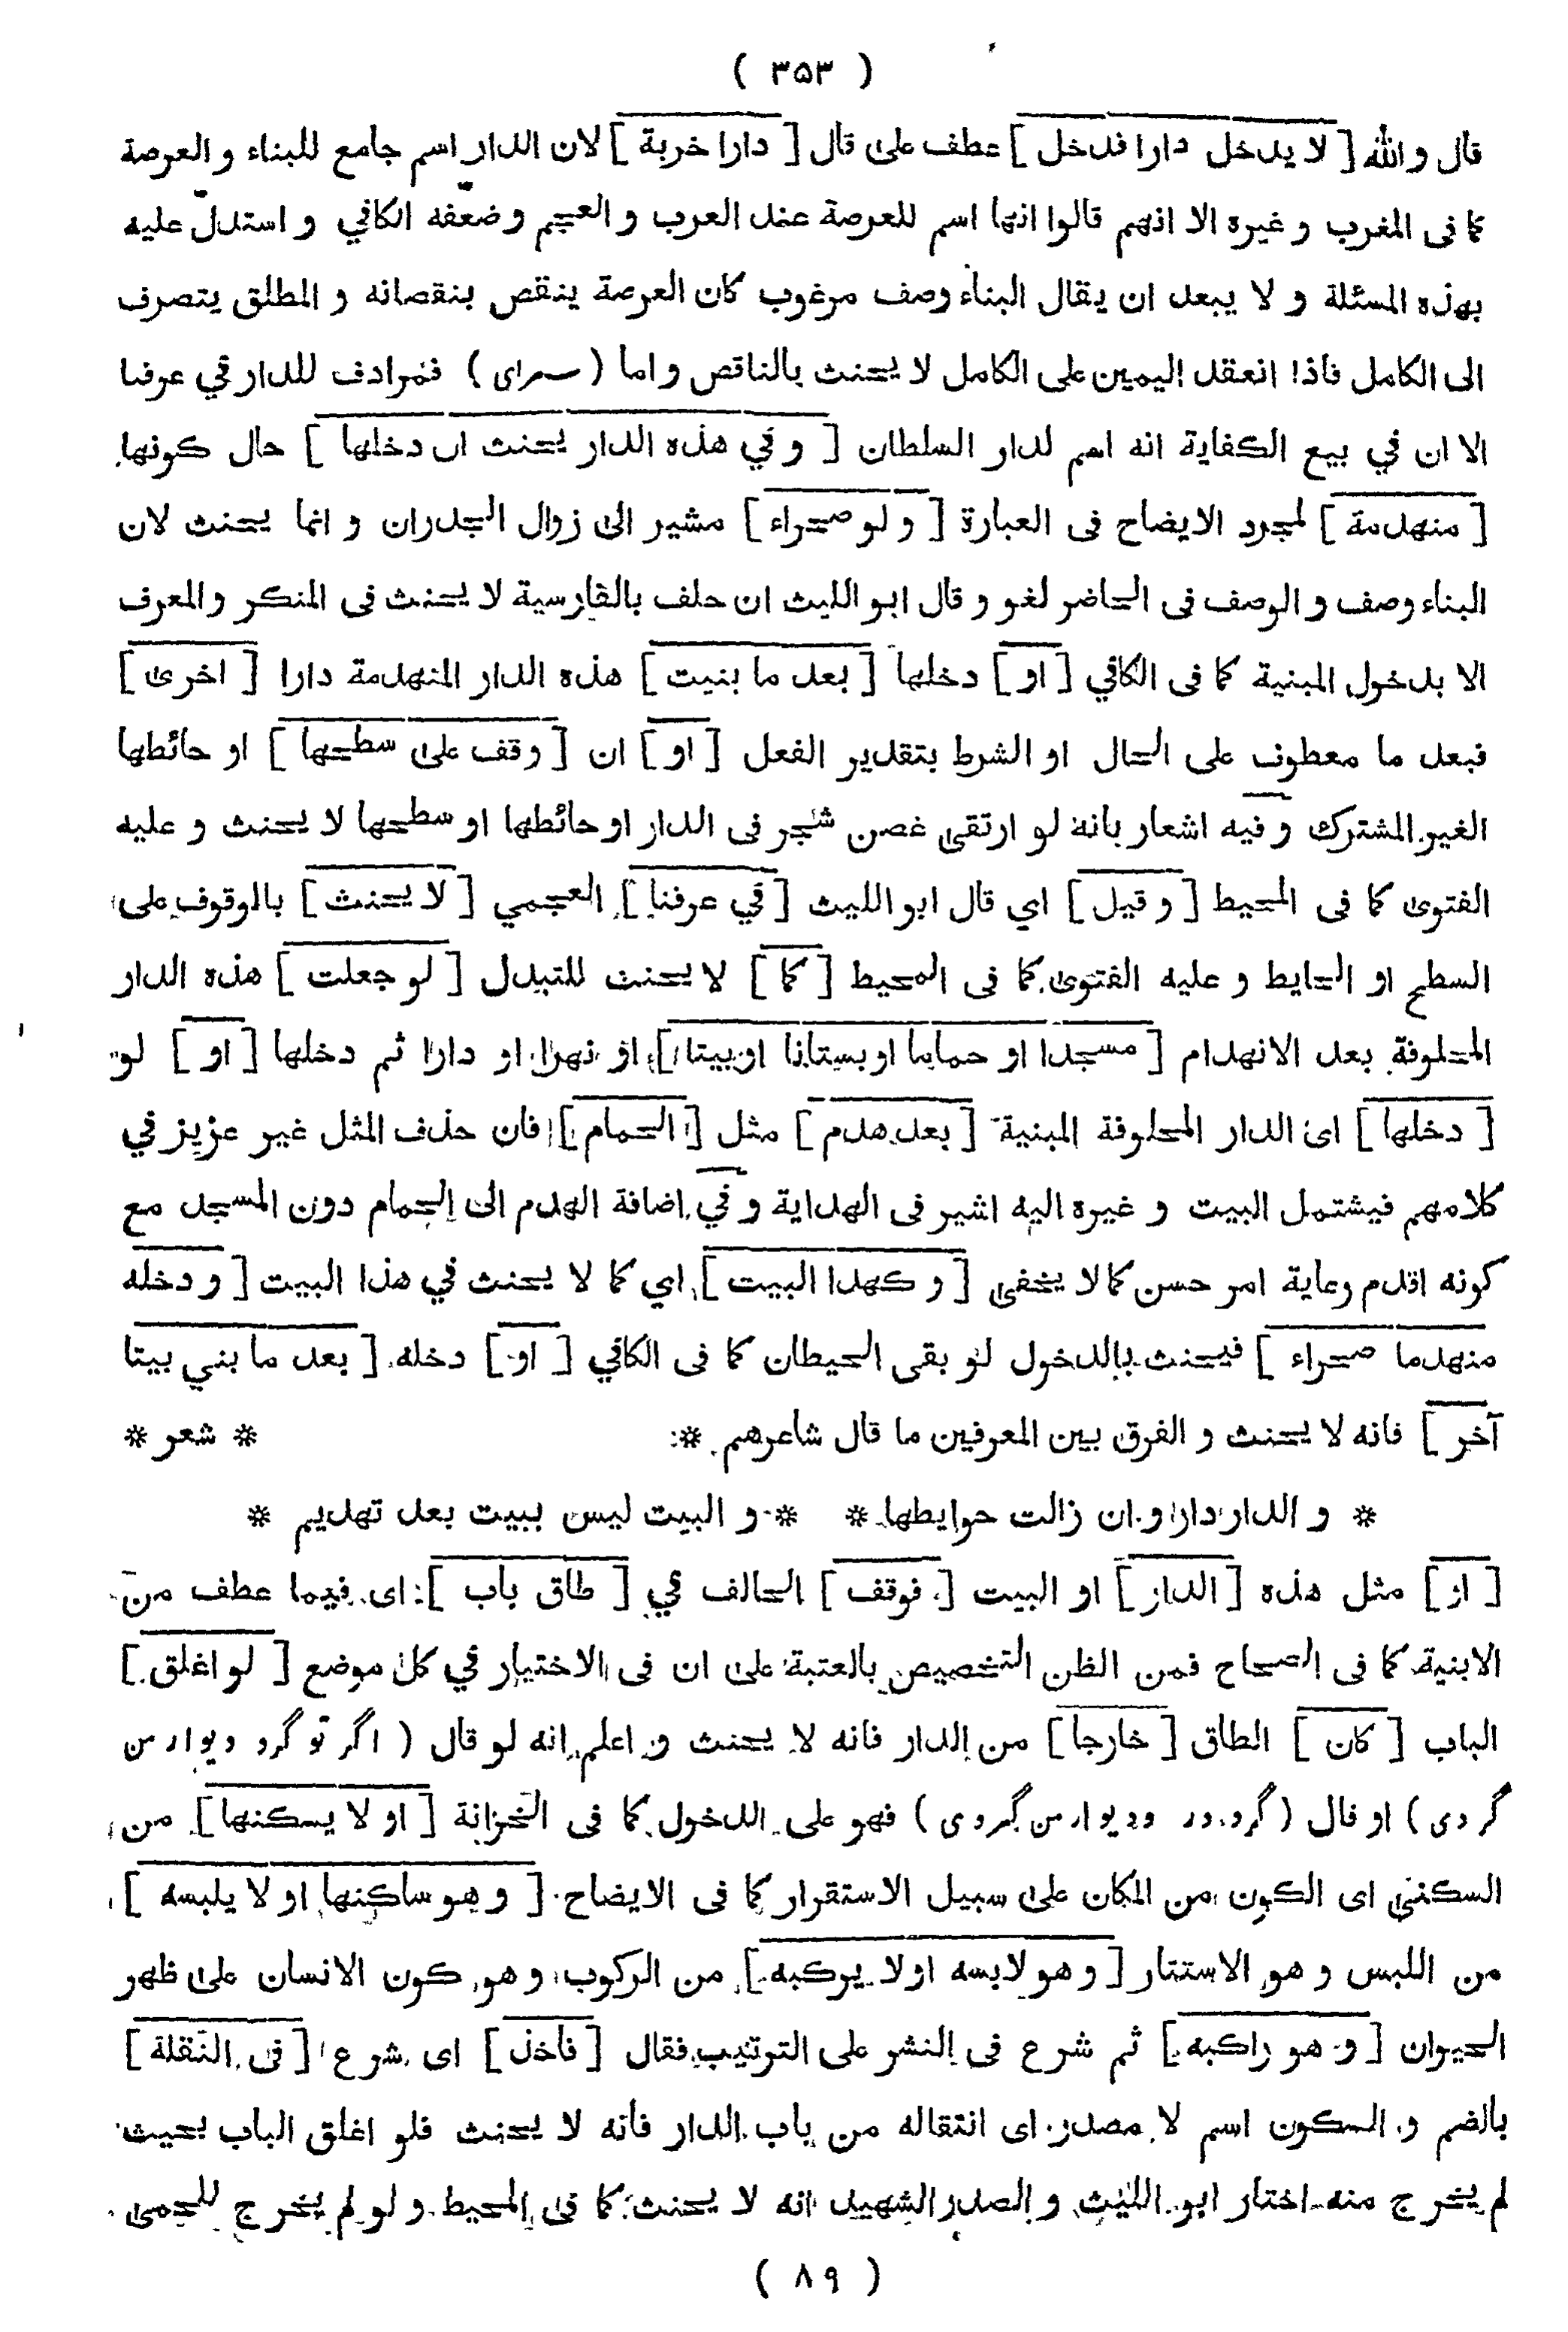 ( ٣٥٣ )
قال و الله [ لا يدخل دارا فدخل ] عطف على قال [ دارا خربة ] لان الدار اسم جامع للبناء و العرصة
كما فى المغرب و غيره الا انهم قالوا انها اسم للعرصة عند العرب و العجم و ضعّفه الكافي و استدلّ عليه
بهذه المسئلة و لا يبعد ان يقال البناء وصف مرغوب كان العرصة ينقص بنقصانه و المطلق يتصرف
الى الكامل فاذا انعقد اليمين على الكامل لا يحنث بالناقص و اما ( سراى ) فمرادف للدار في عرفنا
الا ان في بيع الكفاية انه اسم لدار السلطان [ و في هذه الدار يحنث ان دخلها ] حال كونها
[ منهدمة ] لمجرد الايضاح فى العبارة [ و لو صحراء ] مشير الى زوال الجدران و انما يحنث لان
البناء وصف و الوصف فى الحاضر لغو و قال ابو الليث ان حلف بالفارسية لا يحنث فى المنكر و المعرف
الا بدخول المبنية كما فى الكافي [ او ] دخلها [ بعد ما بنيت ] هذه الدار المنهدمة دارا [ اخرى ]
فبعد ما معطوف على الحال او الشرط بتقدير الفعل [ او ] ان [ وقف على سطحها ] او حائطها
الغير المشترك و فيه اشعار بانه لو ارتقى غصن شجر فى الدار او حائطها او سطحها لا يحنث و عليه
الفتوى كما فى المحيط [ و قيل ] اي قال ابو الليث [ في عرفنا ] العجمي [ لا يحنث ] بالوقوف على
السطح او الحايط و عليه الفتوى كما فى المحيط [ كما ] لا يحنث للتبدل [ لو جعلت ] هذه الدار
المحلوفة بعد الانهدام [ مسجدا او حماما او بستانا او بيتا ] او نهرا او دارا ثم دخلها [ او ] لو
[ دخلها ] اى الدار المحلوفة المبنية [ بعد هدم ] مثل [ الحمام ] فان حذف المثل غير عزيز في
كلامهم فيشتمل البيت و غيره اليه اشير فى الهداية و في اضافة الهدم الى الحمام دون المسجد مع
كونه اقدم رعاية امر حسن كما لا يخفى [ و كهذا البيت ] اي كما لا يحنث في هذا البيت [ و دخله
منهدما صحراء ] فيحنث بالدخول لو بقى الحيطان كما فى الكافي [ او ] دخله [ بعد ما بني بيتا
آخر ] فانه لا يحنث و الفرق بين المعرفين ما قال شاعرهم * * شعر *
* و الدار دار و ان زالت حوايطها * * و البيت ليس ببيت بعد تهديم *
[ او ] مثل هذه [ الدار ] او البيت [ فوقف ] الحالف في [ طاق باب ] اى فيما عطف من
الابنية كما فى الصحاح فمن الظن التخصيص بالعتبة على ان فى الاختيار في كل موضع [ لو اغلق ]
الباب [ كان ] الطاق [ خارجا ] من الدار فانه لا يحنث و اعلم انه لو قال ( اگر تو گرد ديوار من
گردى ) او قال ( گرد در و ديوار من گردى ) فهو على الدخول كما فى الخزانة [ او لا يسكنها ] من
السكنى اى الكون من المكان على سبيل الاستقرار كما فى الايضاح [ و هو ساكنها او لا يلبسه ]
من اللبس و هو الاستتار [ و هو لابسه او لا يركبه ] من الركوب و هو كون الانسان على ظهر
الحيوان [ و هو راكبه ] ثم شرع فى النشر على الترتيب فقال [ فأخذ ] اى شرع [ فى النقلة ]
بالضم و السكون اسم لا مصدر اى انتقاله من باب الدار فانه لا يحنث فلو اغلق الباب بحيث
لم يخرج منه اختار ابو الليث و الصدر الشهيد انه لا يحنث كما فى المحيط و لو لم يخرج للحمى
( ٨٩ )